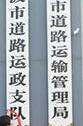 市道路运输管理局
波市道路运政支队